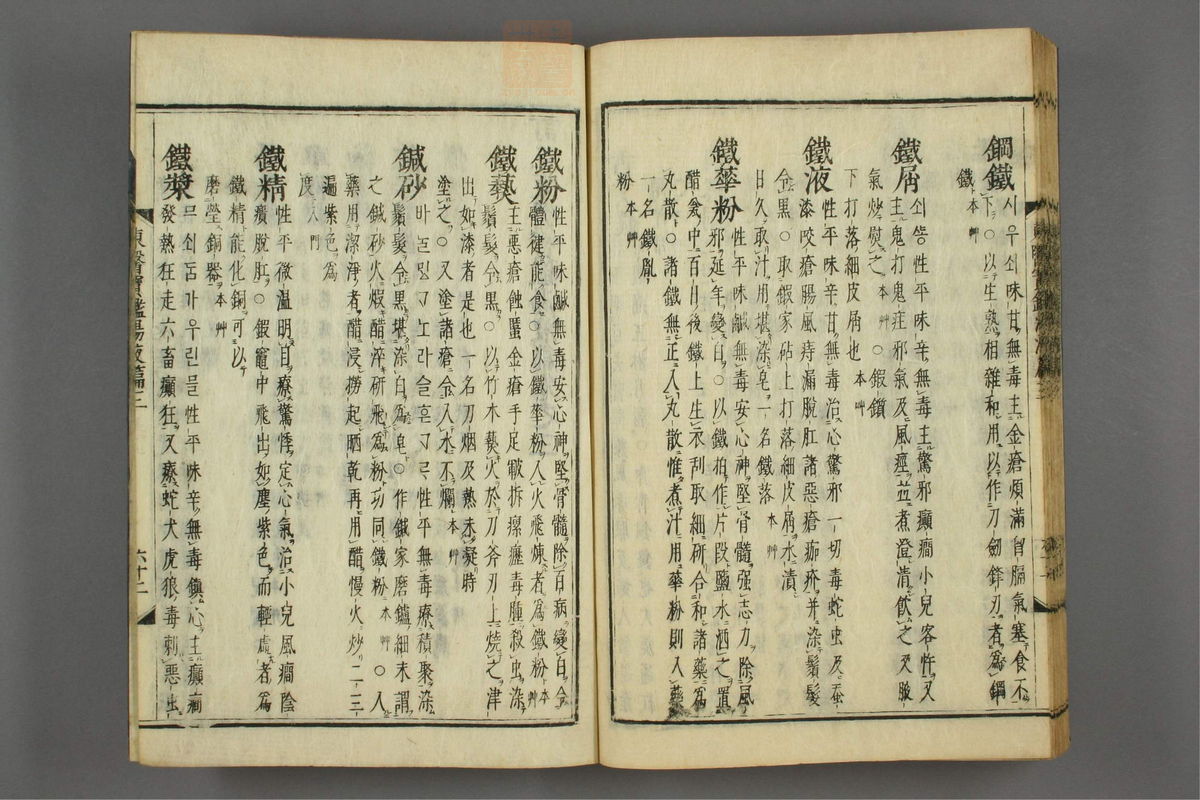 鋼鐵 시우쇠味甘無毒主金瘡煩滿胷膈氣塞食不
下○以生熟相雜和用以作刀劒鋒刃者爲鋼
鐵 本艸
鐵屑 쇠性平味辛無毒主驚邪癲癎小兒客忤又
主鬼打鬼疰邪氣及風痙並煮澄淸飮之又腋
氣炒熨之 本艸 ○鍜鎖
下打落細皮屑也 本艸
鐵液 性平味辛甘無毒治心驚邪一切毒蛇虫及蚕
漆咬瘡腸風痔漏脫肛諸惡瘡疥并染鬚髮
令黑○取鍜家砧上打落細皮屑水漬
日久取汁用堪染皂一名鐵落 本艸
鐵華粉 性平味鹹無毒安心神堅骨髓强志力除風
邪延年變白○以鐵拍作片段鹽水洒之置
醋瓮中百日後鐵上生衣刮取細硏合和諸藥爲
丸散○諸鐵無正入丸散惟煮汁用華粉則入藥
一名鐵胤
粉 本艸
鐵粉 性平味鹹無毒安心神堅骨髓除百病變白令
體健能食○以鐵華粉入火飛煉者爲鐵粉 本艸
鐵爇 主惡瘡蝕䘌金瘡手足皸拆瘰癧毒腫殺虫染
鬚髮令黑○以竹木爇火於刀斧刃上燒之津
出如漆者是也一名刀烟及熱未凝時
塗之○又塗諸瘡令入水不爛 本艸
鍼砂 바性平無毒療積聚染
鬚髮令黑堪染白爲皂○作鍼家磨鑢細末謂
之鍼砂火煆醋淬硏飛爲粉功同鐵粉 本艸 ○入
藥用潔淨者醋浸撈起晒乾再用醋慢火炒二三
遍紫色爲
度 入門
鐵精 性平微溫明目療驚悸定心氣治小兒風癎陰
㿉脫肛○鍜竈中飛出如塵紫色而輕虛者爲
鐵精能化銅可以
磨瑩銅器 本艸
鐵漿 性平味辛無毒鎭心主癲癎
發熱狂走六畜癲狂又療蛇犬虎狼毒刺惡虫
東醫寶鑑湯液篇三
六十二